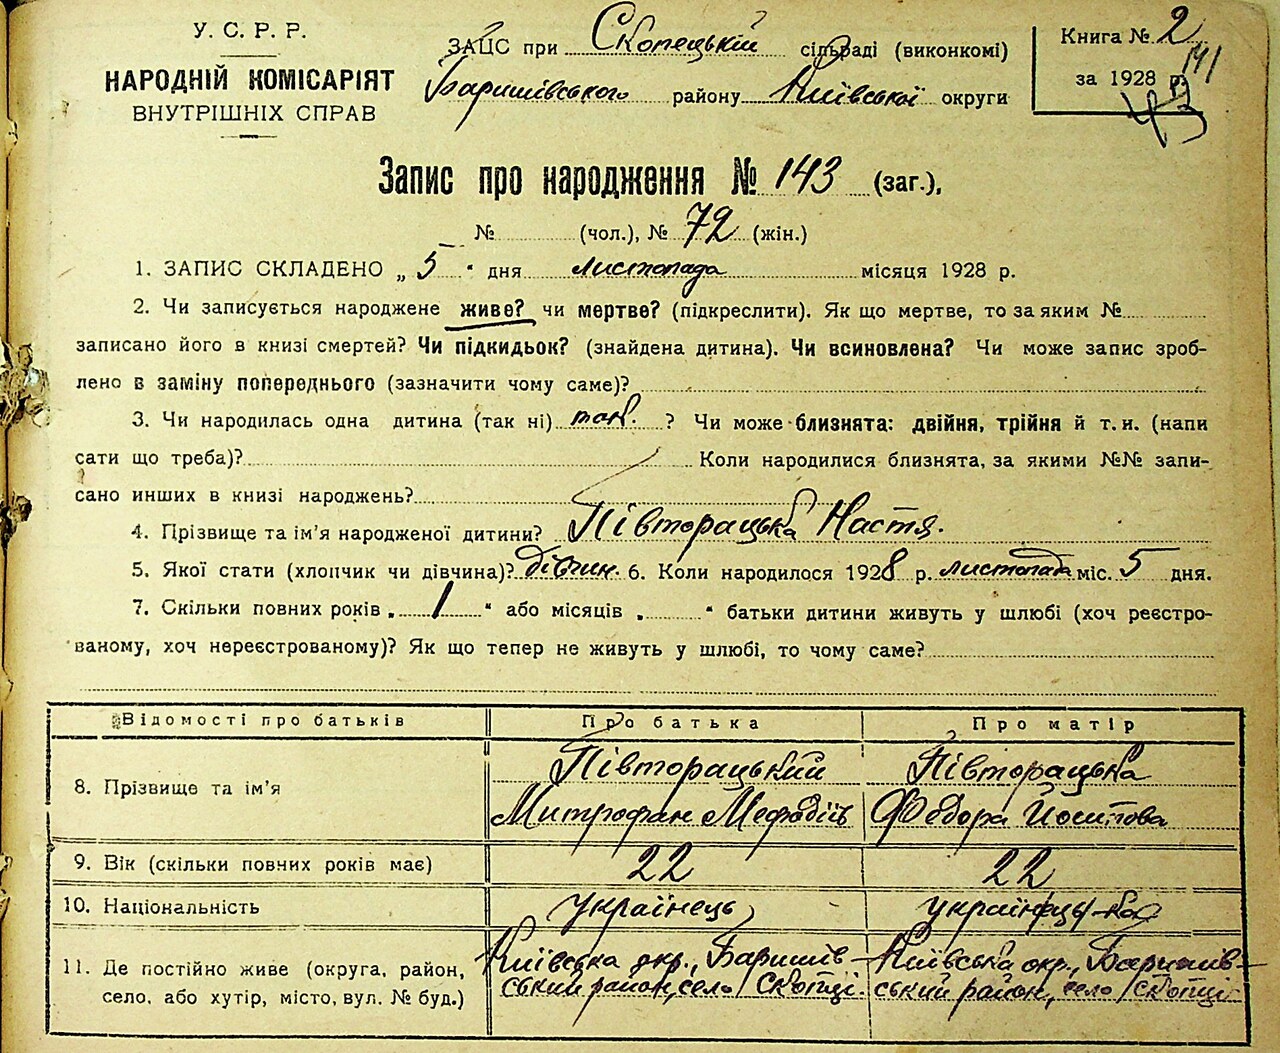 У. С. Р. Р.
НАРОДНІЙ КОМІСАРІЯТ
ВНУТРІШНІХ СПРАВ
ЗАЦС при Скопецькій сільраді (виконкомі)
Баришівського району Київської округи
Книга № 2
141
за 1928 р.
43
Запис про народження № 143 (заг.),
№ (чол.), № 72 (жін.)
1. ЗАПИС СКЛАДЕНО „ 5 " дня листопада місяця 1928 р.
2. Чи записується народжене живе? чи мертве? (підкреслити). Як що мертве, то за яким №
записано його в книзі смертей? Чи підкидьок? (знайдена дитина). Чи всиновлена? Чи може запис зроб-
лено в заміну попереднього (зазначити чому саме)?
3. Чи народилась одна дитина (так ні) так. ? Чи може близнята: двійня, трійня й т. и. (напи
сати що треба)? Коли народилися близнята, за якими №№ запи-
сано инших в книзі народжень?
4. Прізвище та ім'я народженої дитини? Півторацька Настя.
5. Якої стати (хлопчик чи дівчина)? дівчин. 6. Коли народилося 1928 р. листопада міс. 5 дня.
7. Скільки повних років „ 1 " або місяців „ " батьки дитини живуть у шлюбі (хоч реєстро-
ваному, хоч нереєстрованому)? Як що тепер не живуть у шлюбі, то чому саме?
Відомості про батьків Про батька Про матір
8. Прізвище та ім'я Півторацький Митрофан Мефодіїв Півторацька Федора Йосипова
9. Вік (скільки повних років має) 22 22
10. Національність Українець Українець-ка
11. Де постійно живе (округа, район, Київська окр., Баришів- Київська окр., Баришів-
село, або хутір, місто, вул. № буд.) ський район, село Скопці. ський район, село Скопці